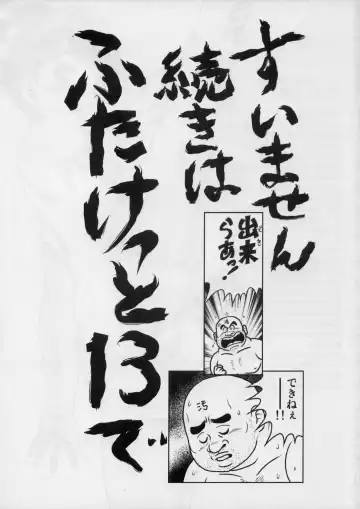 すいません
続きは
ふたけっと13で
出来らあっ!
でき
できねぇ
――!!
汚